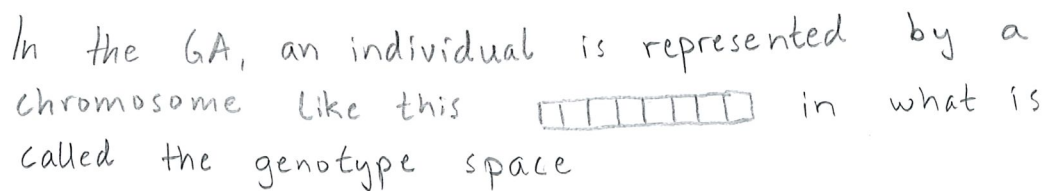 In the GA, an individual is represented by a
chromosome like this in what is
called the genotype space